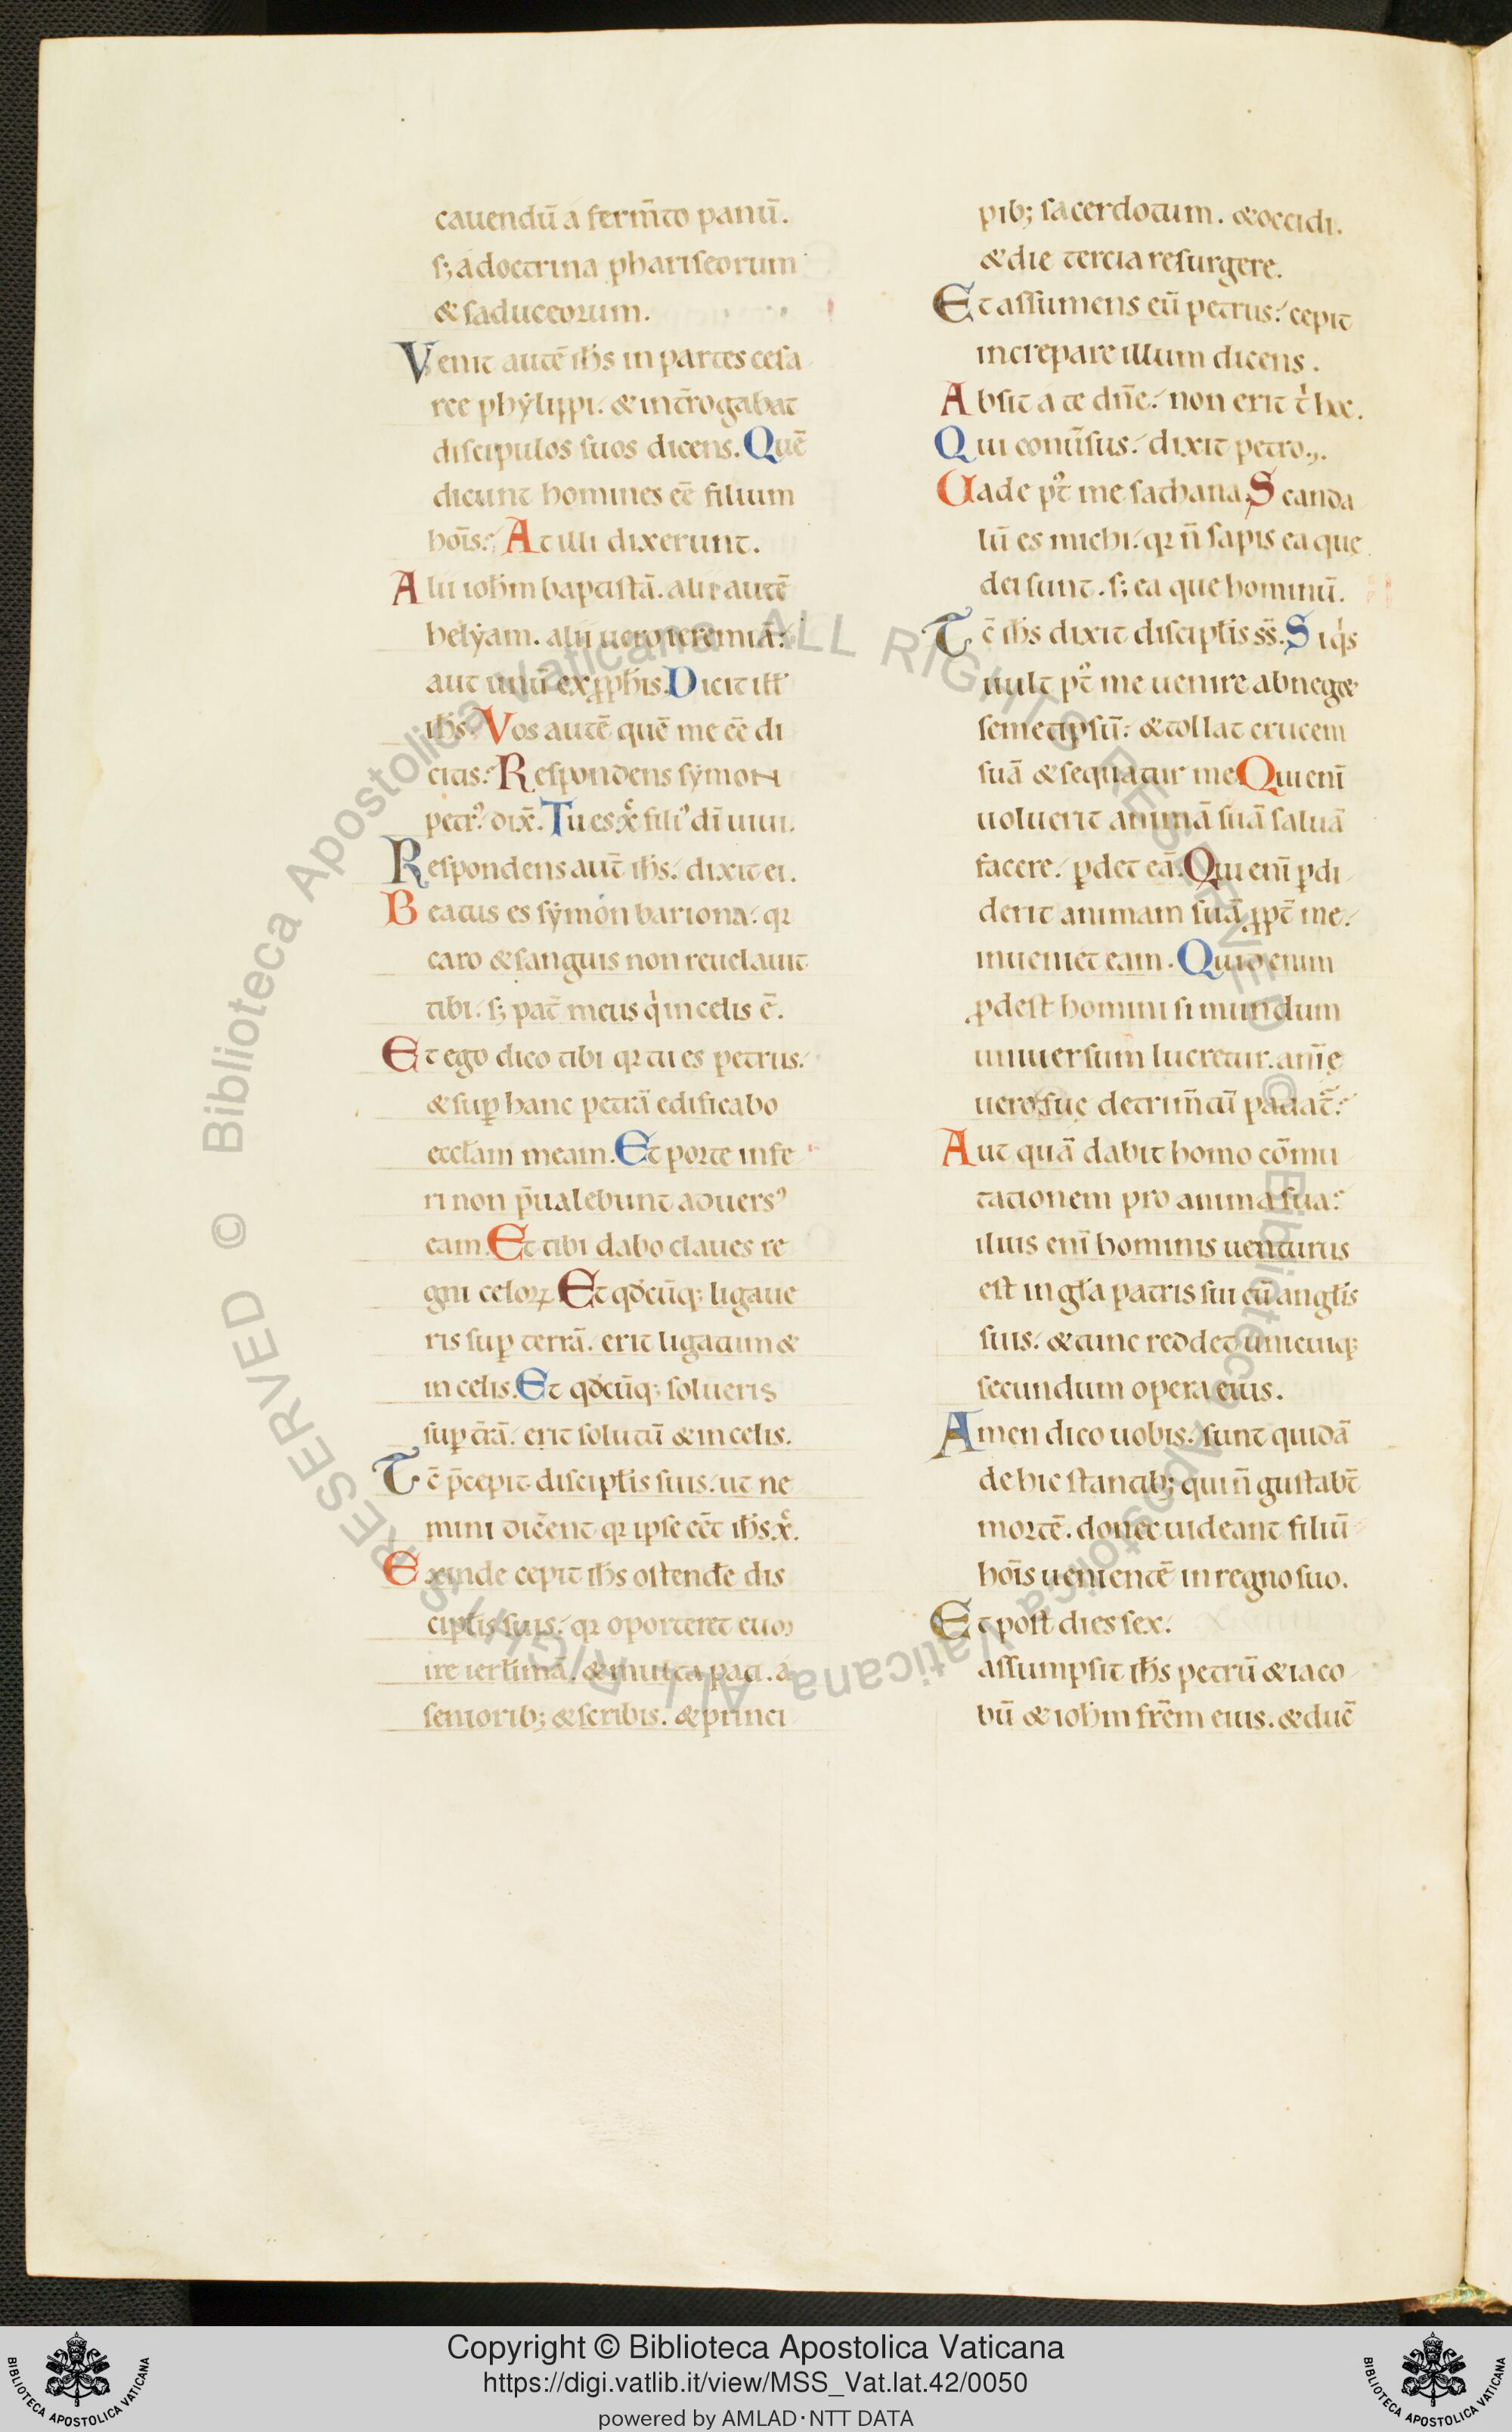 cauendū a ferm̄to panū.
s; a doctrina phariseorum
& saduceorum.
Venit autē ih̄s in partes cesa
ree phẏlippi. & int̄rogabat
discipulos suos dicens. Quē
dicunt homines eē filium
hoīs: At illi dixerunt.
Alii ioh̄m baptistā. alii autē
helẏam. alii uero ieremiā:
aut unū ex ꝓph̄is. Dicit ill̄
ih̄s. Vos autē quē me eē di
citis: Respondens sẏmon
petrꝰ. dix̄. Tu es xp̄c filiꝰ dī uiui.
Respondens aut̄ ih̄s. dixit ei.
Beatus es sẏmon bariona. qr
caro & sanguis non reuelauit
tibi. s; pat̄ meus qͥ in celis ē.
Et ego dico tibi qr tu es petrus.
& suꝑ hanc petrā edificabo
eccl̄am meam. Et porte infe
ri non p̄ualebunt aduersꝰ
eam. Et tibi dabo claues re
gni celoꝝ. Et qd̄cūq; ligaue
ris suꝑ terrā. erit ligatum &
in celis. Et qd̄cūq; solueris
suꝑ t̄rā. erit solutū & in celis.
Tc̄ p̄cepit discipl̄is suis. ut ne
mini dic̄ent qr ipse eēt ih̄s xp̄c.
Exinde cepit ih̄s ostend̄e dis
cipl̄is suis. qr oporteret eum
ire ierl̄imā. & multa pati. a
seniorib; & scribis. & princi
pib; sacerdotum. & occidi.
& die tercia resurgere.
Et assumens eū petrus. cepit
increpare illum dicens.
Absit a te dn̄e. non erit tͥ hoc.
Qui conūsus. dixit petro.
Uade pꝰt me sathana. Scanda
lū es michi. qr n̄ sapis ea que
dei sunt. s; ea que hominū.
Tc̄ ih̄s dixit discipl̄is ss̄. Siqͥs
uult pꝰt me uenire abneg&
semetipsū. & tollat crucem
suā & sequatur me. Qui enī
uoluerit animā suā saluā
facere. ꝑdet eā. Qui enī ꝑdi
derit animam suā ꝓpt̄ me.
inueniet eam. Quid enim
ꝓdest homini si mundum
uniuersum lucretur. anīę
uero suę detrim̄tū paciat̄.
Aut quā dabit homo cōmu
tationem pro anima sua:
ilius enī hominis uenturus
est in gl̄a patris sui cū angl̄is
suis. & tunc reddet unicuiq;
secundum opera eius.
Amen dico uobis. sunt quidā
de hic stantib; qui n̄ gustabt̄
mortē. donec uideant filiū
hoīs uenientē in regno suo.
Et post dies sex.
assumpsit ih̄s petrū & iaco
bū & ioh̄m fr̄em eius. & duc̄
© Biblioteca Apostolica Vaticana ALL RIGHTS RESERVED © Biblioteca Apostolica Vaticana ALL RIGHTS RESERVED
Copyright © Biblioteca Apostolica Vaticana
https://digi.vatlib.it/view/MSS_Vat.lat.42/0050
powered by AMLAD·NTT DATA
BIBLIOTECA APOSTOLICA VATICANA
BIBLIOTECA APOSTOLICA VATICANA